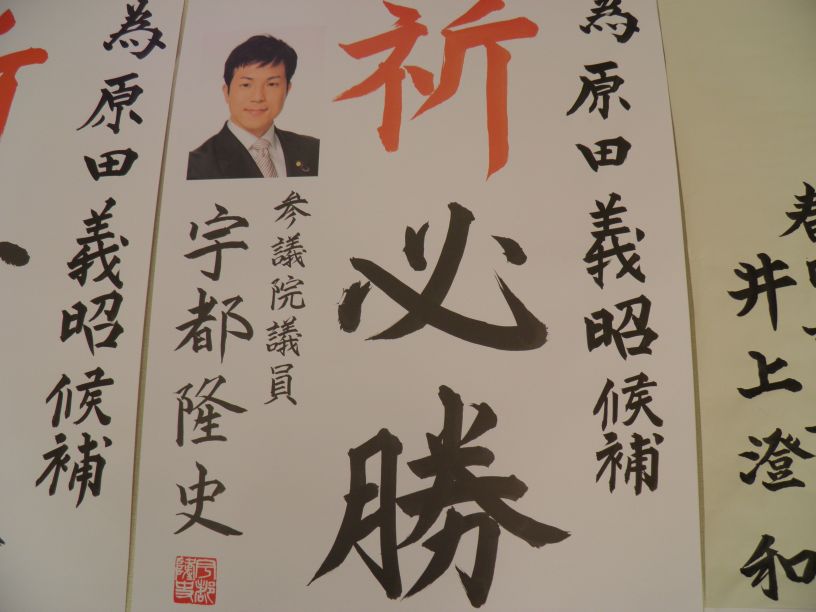 為原田義昭候補
祈必勝
参議院議員
宇都隆史
為原田義昭候補
祈
井上澄和